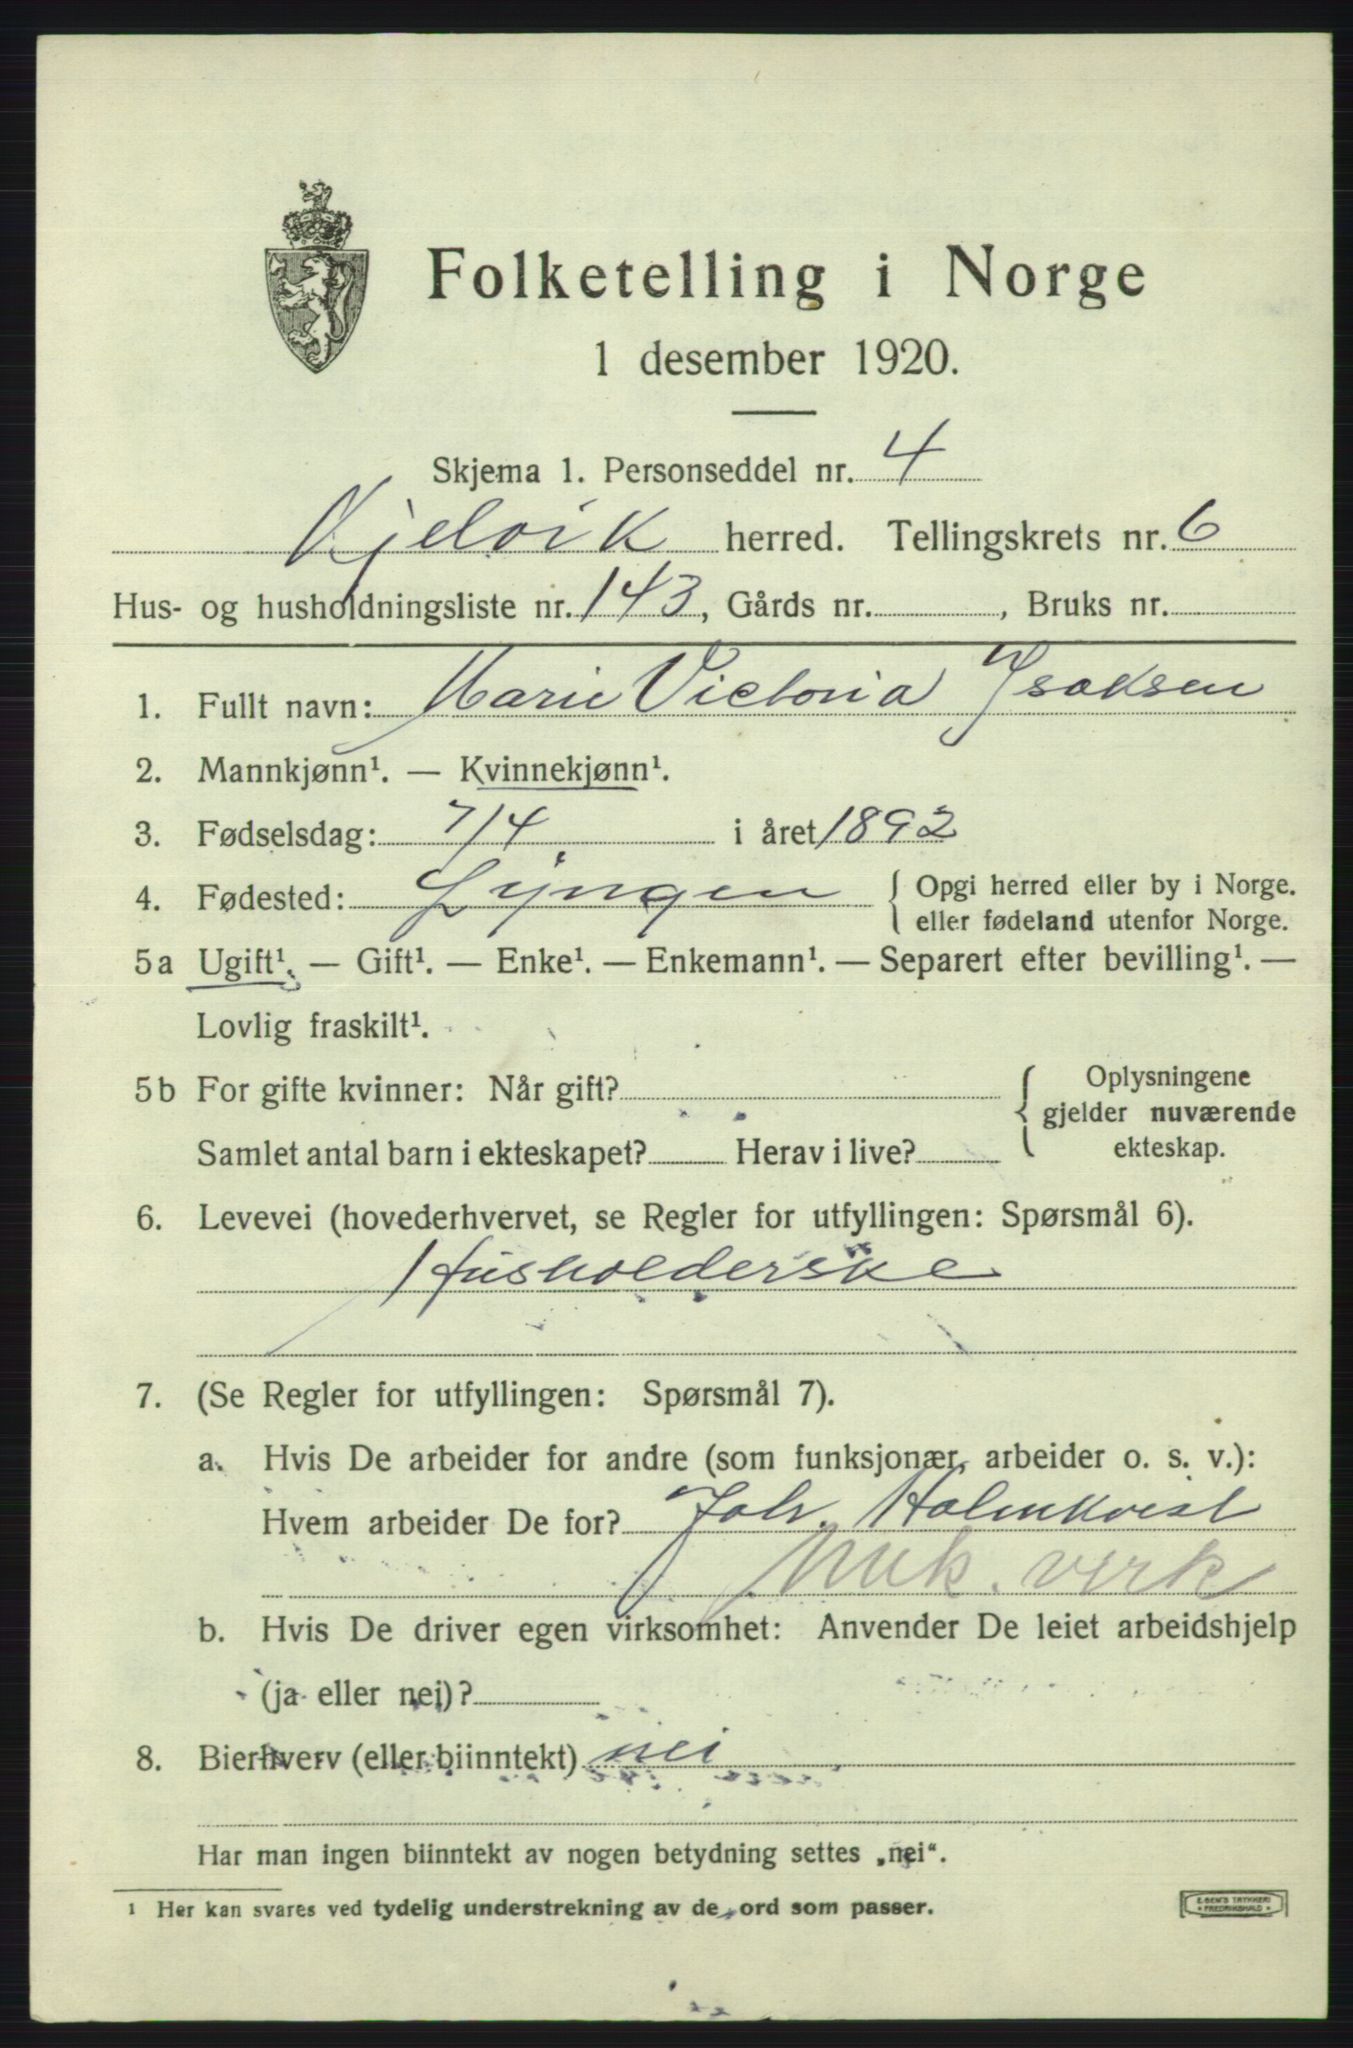 Folketelling i Norge
1 desember 1920.
Skjema 1. Personseddel nr. 4
Kjelvik herred. Tellingskrets nr. 6
Hus- og husholdningsliste nr. 143, Gårds nr. , Bruks nr.
1. Fullt navn: Marie Victoria Isaksen
2. Mannkjønn¹. — Kvinnekjønn¹.
3. Fødselsdag: 7/4 i året 1892
4. Fødested: Lyngen { Opgi herred eller by i Norge.
eller fødeland utenfor Norge.
5a Ugift¹. — Gift¹. — Enke¹. — Enkemann¹. — Separert efter bevilling¹. —
Lovlig fraskilt¹.
5b For gifte kvinner: Når gift? { Oplysningene
gjelder nuværende
Samlet antal barn i ekteskapet? Herav i live? ekteskap.
6. Levevei (hovederhvervet, se Regler for utfyllingen: Spørsmål 6).
Husholderske
7. (Se Regler for utfyllingen: Spørsmål 7).
a. Hvis De arbeider for andre (som funksjonær, arbeider o. s. v.):
Hvem arbeider De for? Joh. Holmkvist
Mek. verk
b. Hvis De driver egen virksomhet: Anvender De leiet arbeidshjelp
(ja eller nei)?
8. Bierhverv (eller biinntekt) nei
Har man ingen biinntekt av nogen betydning settes „nei“.
¹ Her kan svares ved tydelig understrekning av de ord som passer.
E. SEM'S TRYKKERI
FREDRIKSHALD